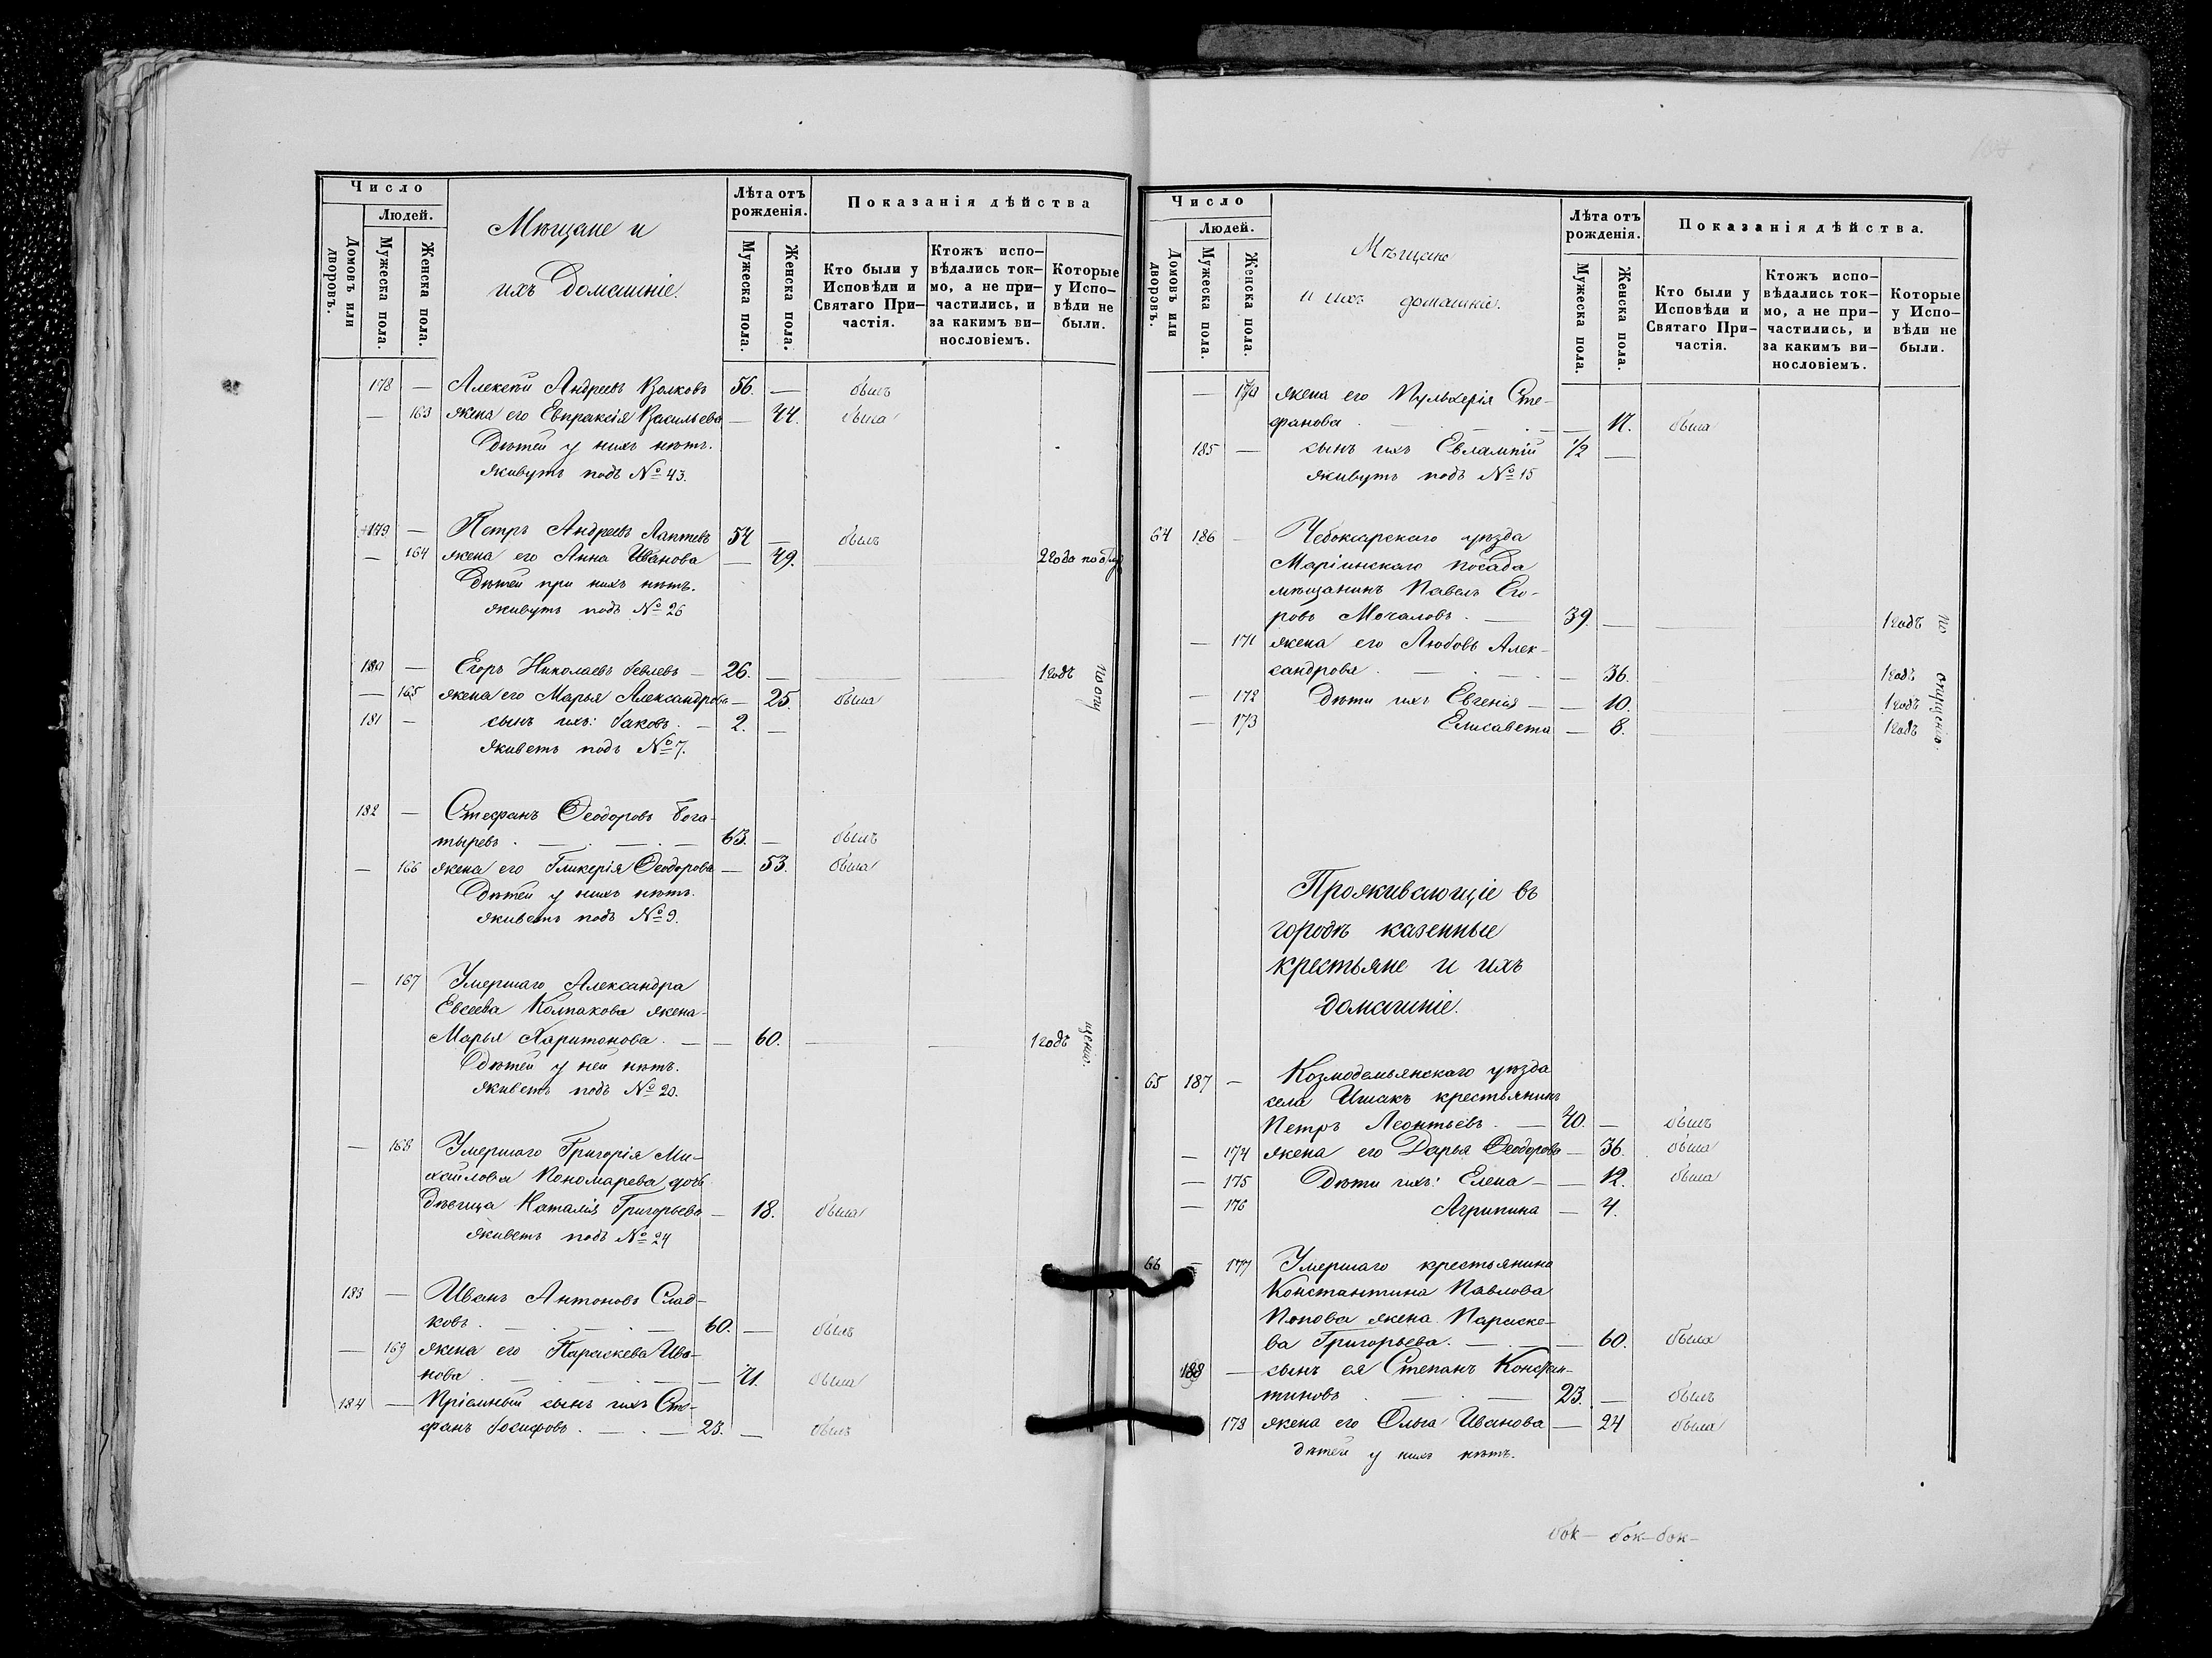 Число
Людей.
Домовъ или дворовъ.
Мужеска пола.
Женска пола.
Мѣщане и
ихъ домашніе.
Лѣта отъ рожденія.
Мужеска пола.
Женска пола.
Показанія дѣйства
Кто были у Исповѣди и Святаго Причастія.
Ктожъ исповѣдались токмо, а не причастились, и за какимъ винословіемъ.
Которые у Исповѣди не были.
178 — Алексѣй Андреевъ Волковъ 56. — былъ
— 163 жена его Евпраксія Васильева — 44. была
Дѣтей у нихъ нѣтъ.
Живутъ подъ № 43.
179 — Петръ Андреевъ Лаптевъ 54 — былъ
— 164 жена его Анна Иванова — 49. 2 года
Дѣтей при нихъ нѣтъ.
Живутъ подъ № 26
180 — Егоръ Николаевъ — 26. — 1 годъ
— 165 жена его Марья Александрова — 25. была
181 — сынъ ихъ: Іаковъ. — 2. —
Живетъ подъ № 7.
182 — Стефанъ Ѳеодоровъ Бога-
тыревъ. — 63. — былъ
— 166 жена его Гликерія Ѳеодорова — 53. была
Дѣтей у нихъ нѣтъ.
Живетъ подъ № 9.
— 167 Умершаго Александра
Евсеева Колпакова жена
Марья Харитонова. — — 60. 1 годъ
Дѣтей у ней нѣтъ.
Живетъ подъ № 20.
по опу
щенію.
— 168 Умершаго Григорія Ми-
хайлова Пономарева дочь
Дѣвица Наталія Григорьева — 18. была
Живетъ подъ № 24
183 — Иванъ Антоновъ Слад-
ковъ. — 60. — былъ
— 169 жена его Параскева Ива-
нова — была
184 — Пріемный сынъ ихъ Сте-
фанъ Іосифовъ. — 23. — былъ
Число
Людей.
Домовъ или дворовъ.
Мужеска пола.
Женска пола.
Мѣщане
и ихъ домашніе.
Лѣта отъ рожденія.
Мужеска пола.
Женска пола.
Показанія дѣйства.
Кто были у Исповѣди и Святаго Причастія.
Ктожъ исповѣдались токмо, а не причастились, и за какимъ винословіемъ.
Которые у Исповѣди не были.
— 170 жена его Пульхерія Сте-
фанова — была
185 — сынъ ихъ Евлампій 1/2 —
Живутъ подъ № 15
64 186 — Чебоксарскаго уѣзда
Маріинскаго посада
мѣщанинъ Павелъ Его-
ровъ Мочаловъ. — 39. — 1 годъ
— 171 жена его Любовь Алек-
сандрова. — 36. 1 годъ
— 172 Дѣти ихъ Евгенія — — 10. 1 годъ
— 173 Елисавета — 8. 1 годъ
по опущенію.
Проживающіе въ
городѣ казенные
крестьяне и ихъ
домашніе.
65 187 — Козмодемьянскаго уѣзда
села Ишакъ крестьянинъ
Петръ Леонтьевъ. — 40. — былъ
— 174 жена его Дарья Ѳеодорова — 36. была
— 175 Дѣти ихъ: Елена — — 12. была
— 176 Агрипина — 4.
66 — 177 Умершаго крестьянина
Константина Павлова
Попова жена Параске-
ва Григорьева. — — 60. была
188 — сынъ ея Степанъ Констан-
тиновъ — 23. — былъ
178 жена его Ольга Иванова — 24 была
дѣтей у нихъ нѣтъ.
бок— бок—бок—